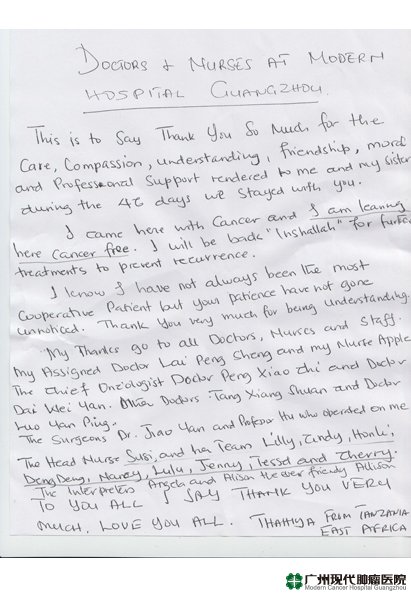 DOCTORS & NURSES AT MODERN
HOSPITAL GUANGZHOU.
This is to Say Thank You So Much for the
Care, Compassion, understanding, friendship, moral
and Professional Support rendered to me and my sister
during the 46 days we stayed with you.
I came here with Cancer and I am leaving
here Cancer free. I will be back "Inshallah" for further
treatments to prevent recurrence.
I know I have not always been the most
Cooperative Patient but your patience have not gone
unnoticed. Thank You very much for being understanding.
My Thanks go to all Doctors, Nurses and Staff.
My Assigned Doctor Lai Peng Sheng and my Nurse Apple
The Chief Oncologist Doctor Peng Xiao Chi and Doctor
Dai Wei Yan. Doctors: Tang Xiang Shuan and Doctor
Luo Yan Ping.
The Surgeons Dr. Jiao Yan and Professor Hu who operated on me
The Head Nurse Susi, and her Team Lilly, Cindy, Honki
DengDeng, Nancy, Lulu, Jenny, Tessel and Cherry.
The Interpreters Angela and Alison the ever friendly Allison
TO YOU ALL I SAY THANK YOU VERY
MUCH. LOVE YOU ALL. THAHIYA FROM TANZANIA
EAST AFRICA
广州现代肿瘤医院
Modern Cancer Hospital Guangzhou